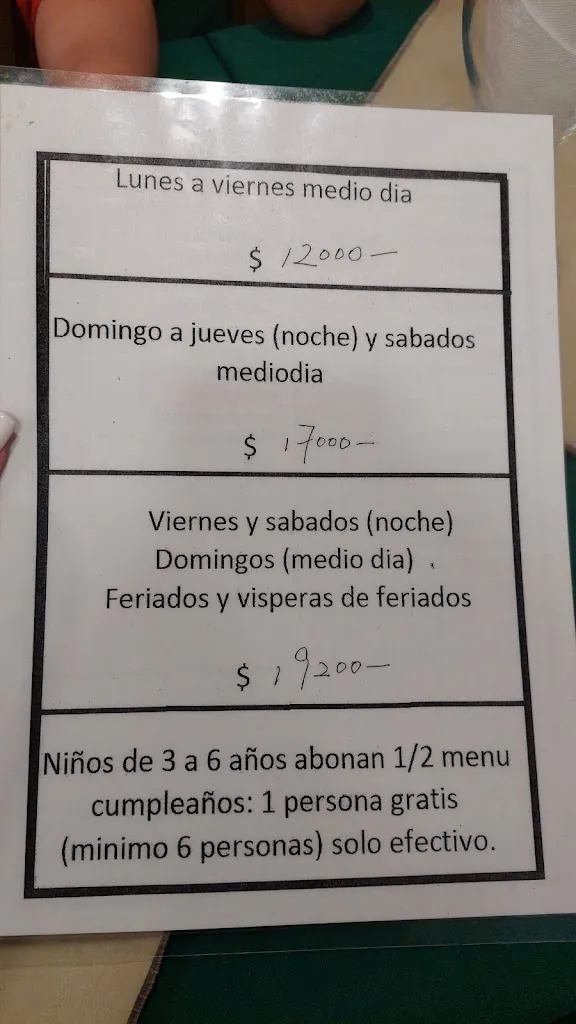 Lunes a viernes medio dia
$ 12000-
Domingo a jueves (noche) y sabados
mediodia
$ 17000-
Viernes y sabados (noche)
Domingos (medio dia)
Feriados y visperas de feriados
$ 19200-
Niños de 3 a 6 años abonan 1/2 menu
cumpleaños: 1 persona gratis
(minimo 6 personas) solo efectivo.